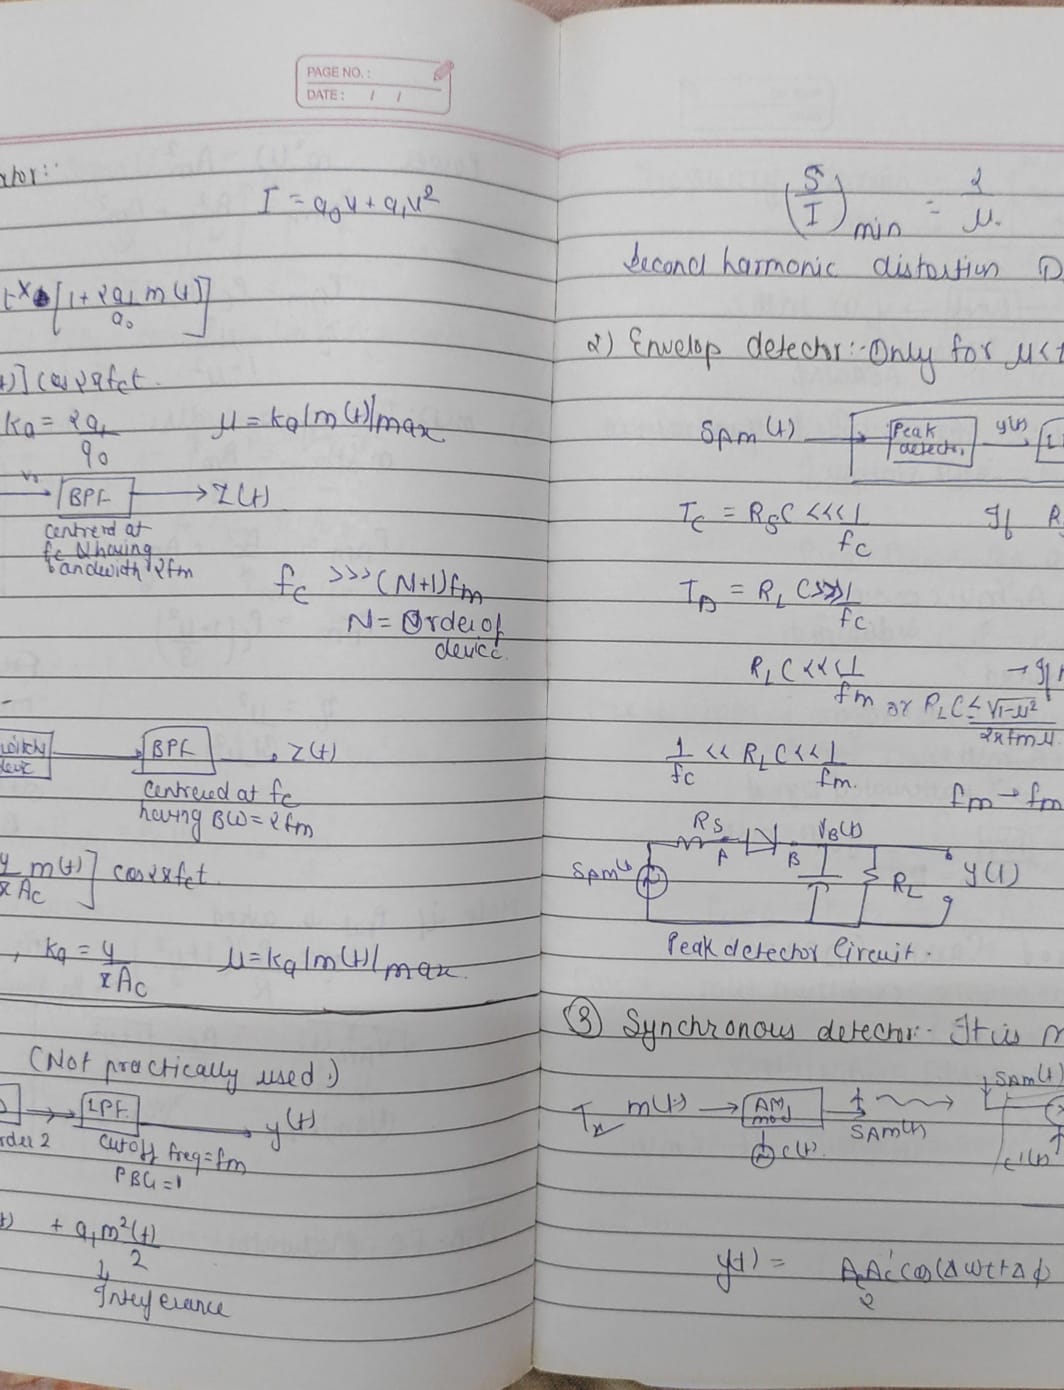 PAGE NO.:
DATE: / /
ator:-
I = a₀v + a₁v²
[1 + 2a₁ m(t)/a₀]
t)] cos2πfct.
ka = 2a₁/a₀ μ = ka|m(t)|max
V₀ → BPF → Z(t)
Centrerd at
fc & having
bandwidth 2fm
fc >>> (N+1)fm
N = Order of
device.
BPF Z(t)
Centrered at fc
having BW = 2fm
4/πAc m(t)] cos2πfct.
, ka = 4/πAc μ = ka|m(t)|max.
(Not practically used.)
rder 2 → LPF. → y(t)
Cutoff freq = fm
PBG = 1
t) + a₁m²(t)/2
↓
Inteferance
(S/I)min = 2/μ.
Second harmonic distortion D
2) Envelop detector:- Only for μ<1
SAM(t) → Peak detector, y(t) → L
Tc = RsC <<< 1/fc If R
TD = RLC >>> 1/fc
RLC <<< 1/fm or RLC ≤ √1-μ²/2πfmμ → If
1/fc << RLC << 1/fm. fm → fm
SAM(t) Rs A B VB(t) RL y(t)
Peak detector Circuit.
③ Synchronous detector:- It is
Tx m(t) → AM mod → SAM(t) SAM(t)
c(t) c'(t)
y(t) = AcAc'/2 cos(Δωct+Δφ